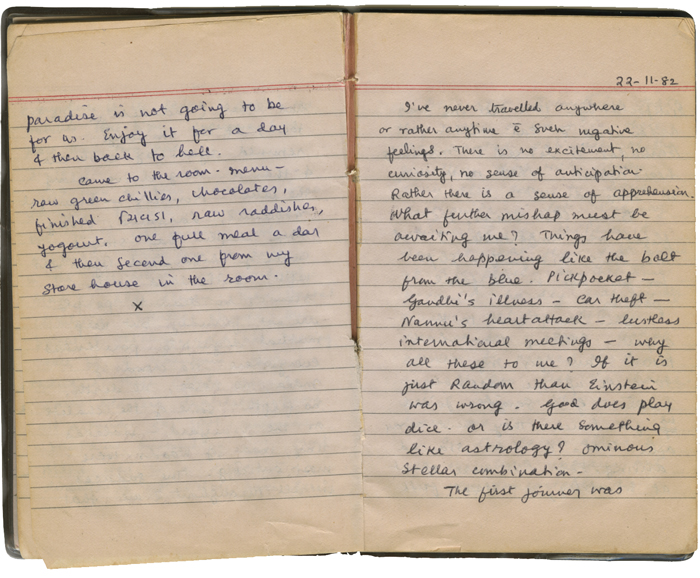 paradise is not going to be
for us. Enjoy it for a day
& then back to hell.
Came to the room. menu -
raw green chillies, chocolates,
finished raw raddishes,
yogourt. one full meal a day
& then second one from my
store house in the room.
x
22-11-82
I've never travelled anywhere
or rather anytime c̄ such negative
feelings. There is no excitement, no
curiosity, no sense of anticipation.
Rather there is a sense of apprehension
What further mishap must be
awaiting me? Things have
been happening like the bolt
from the blue. Pickpocket -
Gandhi's illness - Car theft -
Nannu's heartattack - lustless
international meetings - why
all these to me? If it is
just Random than Einstein
was wrong. Good does play
dice. or is there something
like astrology? ominous
Stellar combination -
The first was